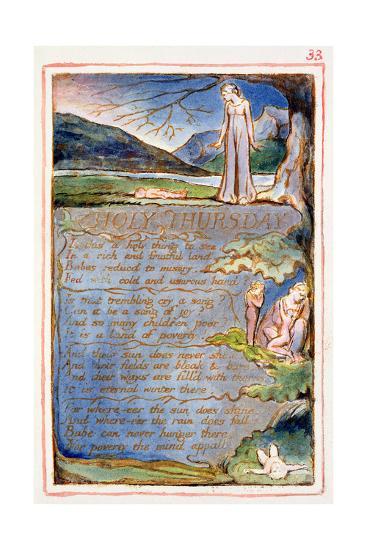 33
HOLY THURSDAY
Is this a holy thing to see
In a rich and fruitful land
Babes reducd to misery
Fed with cold and usurous hand
Is that trembling cry a song?
Can it be a song of joy?
And so many children poor
It is a land of poverty
And their sun does never shine
And their fields are bleak & bare
And their ways are fill'd with thorns
It is eternal winter there
For where-e'er the sun does shine
And where-e'er the rain does fall
Babe can never hunger there
Nor poverty the mind appall